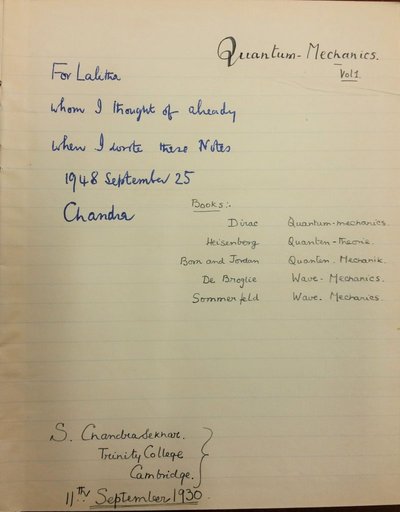 Quantum-Mechanics.
Vol 1.
For Lalitha
whom I thought of already
when I wrote these Notes
1948 September 25
Chandra
Books:-
Dirac Quantum-mechanics.
Heisenberg Quanten-Theorie.
Born and Jordan Quanten. Mechanik.
De Broglie Wave-Mechanics.
Sommerfeld Wave-Mechanics.
S. Chandrasekhar.
Trinity College
Cambridge.
11th September 1930.